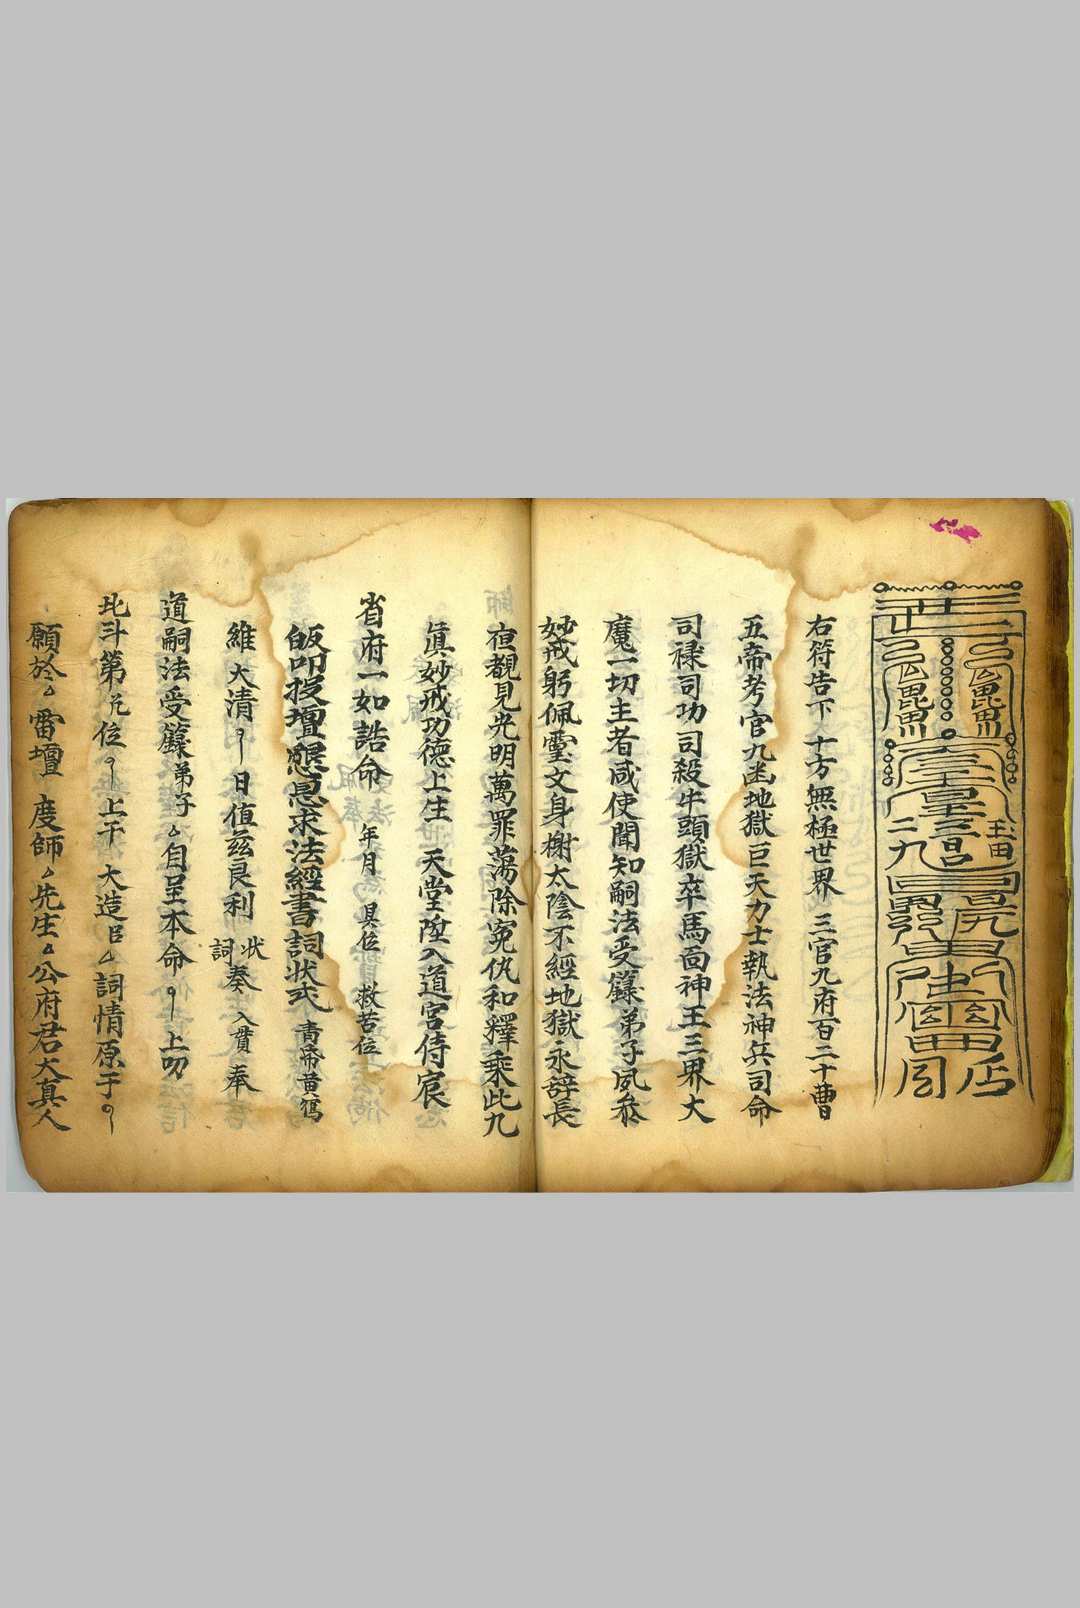 右符告下十方無極世界三官九府百二十曹
五帝考官九幽地獄巨天力士執法神兵司命
司祿司功司殺牛頭獄卒馬面神王三界大
魔一切主者咸使聞知嗣法受籙弟子夙參
妙戒躬佩靈文身謝太陰不經地獄永辭長
夜覩見光明萬罪蕩除冤仇和釋乘此九
真妙戒功德上生天堂陞入道宮侍宸
省府一如誥命 年月 具位 救苦位
皈叩投壇懇恩求法經書詞狀式 青帋黃寫
維大清 日值茲良利 狀詞奏 入貲奉
道嗣法受籙弟子 自呈本命 上叩
北斗第 位 上干大造 詞情原于
願於 雷壇 度師 先生 公府君大真人